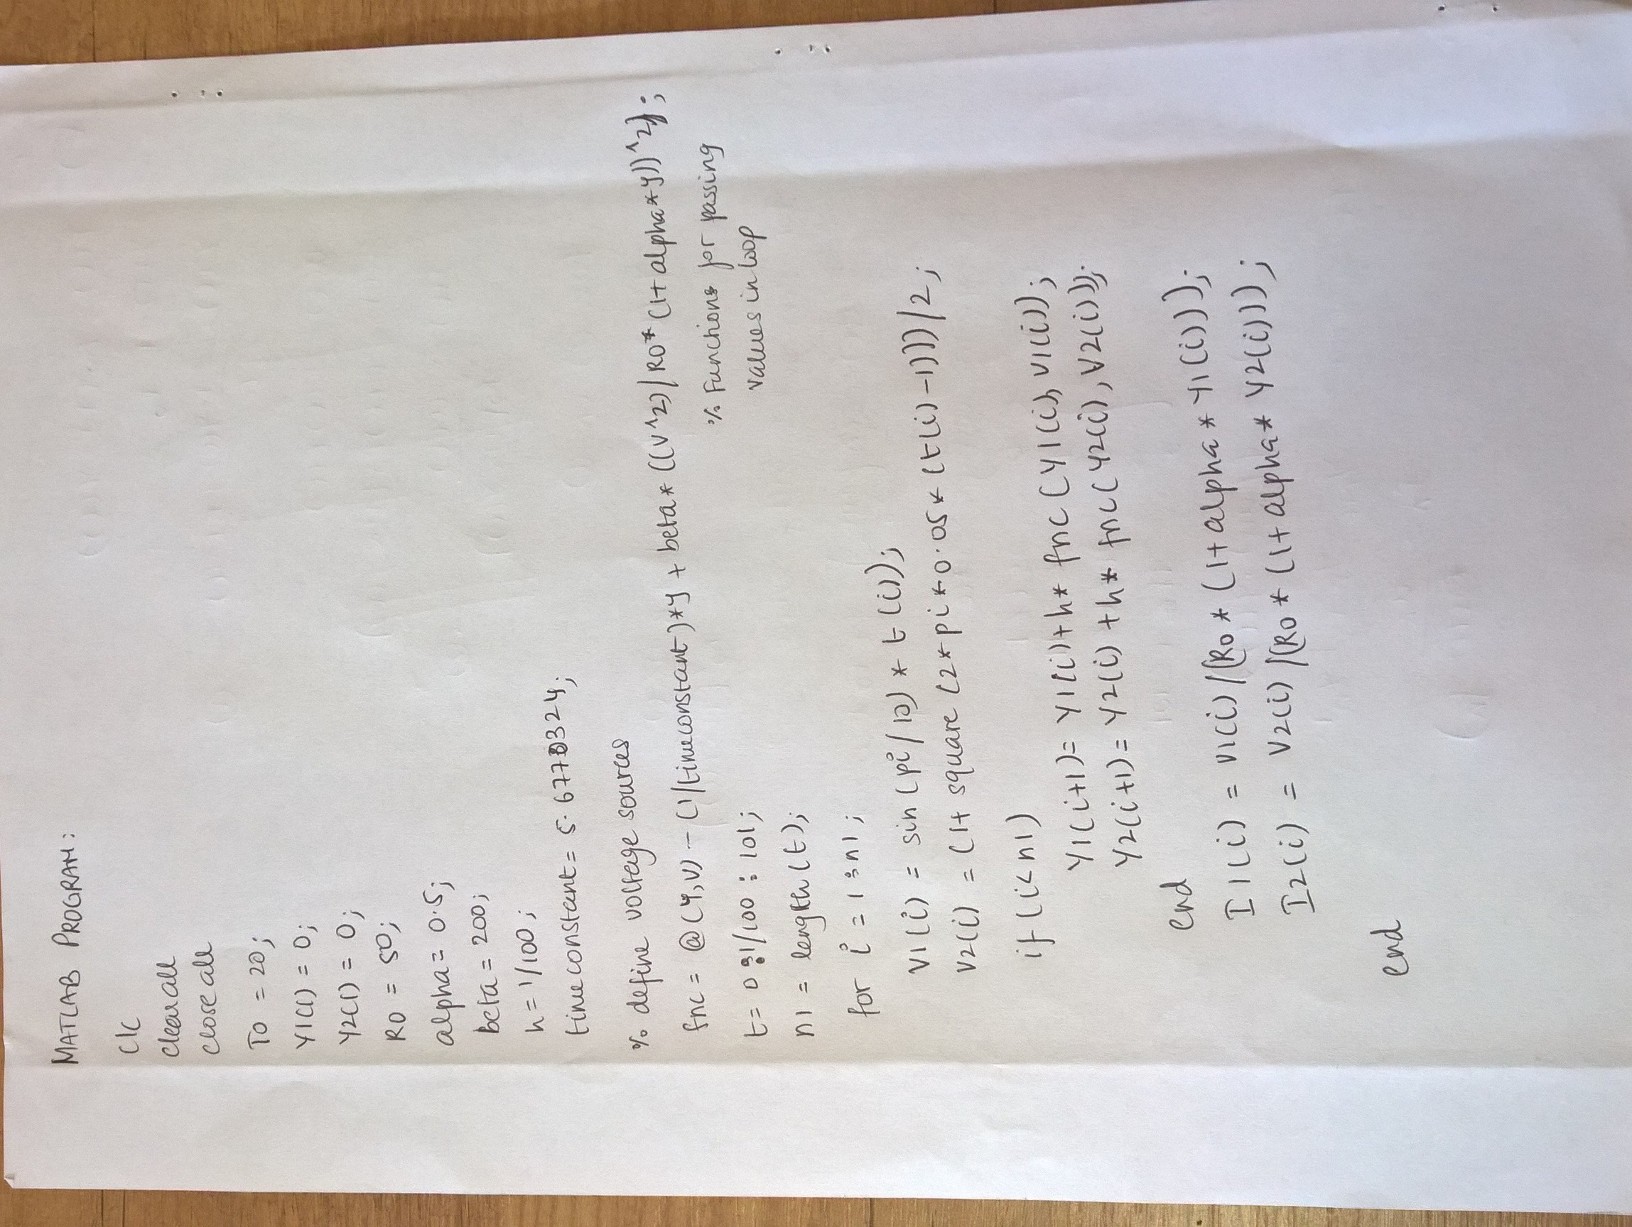 MATLAB PROGRAM:
clc
clear all
close all
T0 = 20;
Y1(1) = 0;
Y2(1) = 0;
R0 = 50;
alpha = 0.5;
beta = 200;
h = 1/100;
timeconstant = 5.6770324;
% define voltage sources
fnc = @(Y,V) - (1/timeconstant)*y + beta* ((V^2)/R0* (1+alpha*y))^2);
% Functions for passing
values in loop
t= 0:1/100 : 101;
n1 = length(t);
for i = 1:n1;
V1(i) = sin (pi/10) * t(i));
V2(i) = (1+ square (2*pi*0.05* (t(i)-1)))/2;
if (i<n1)
Y1(i+1)= Y1(i)+h* fnc(Y1(i), V1(i));
Y2(i+1)= Y2(i) +h* fnc(Y2(i), V2(i));
end
I1(i) = V1(i)/(R0 * (1+alpha * Y1(i)));
I2(i) = V2(i)/(R0 * (1+alpha* Y2(i)));
end